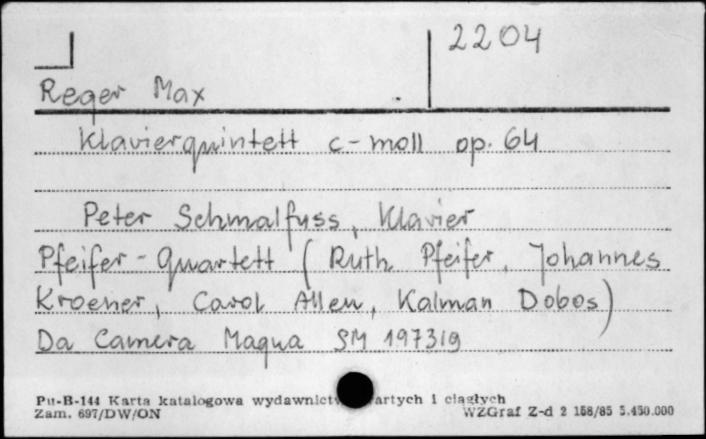 2204
Reger Max
Klavierquintett c-moll op. 64
Peter Schmalfuss, Klavier
Pfeifer-Quartett (Ruth Pfeifer, Johannes
Kroener, Carol Allen, Kalman Dobos)
Da Camera Magna SM 197319
Pu-B-144 Karta katalogowa wydawnictw artych i ciągłych
Zam. 697/DW/ON WZGraf Z-d 2 158/85 5.450.000